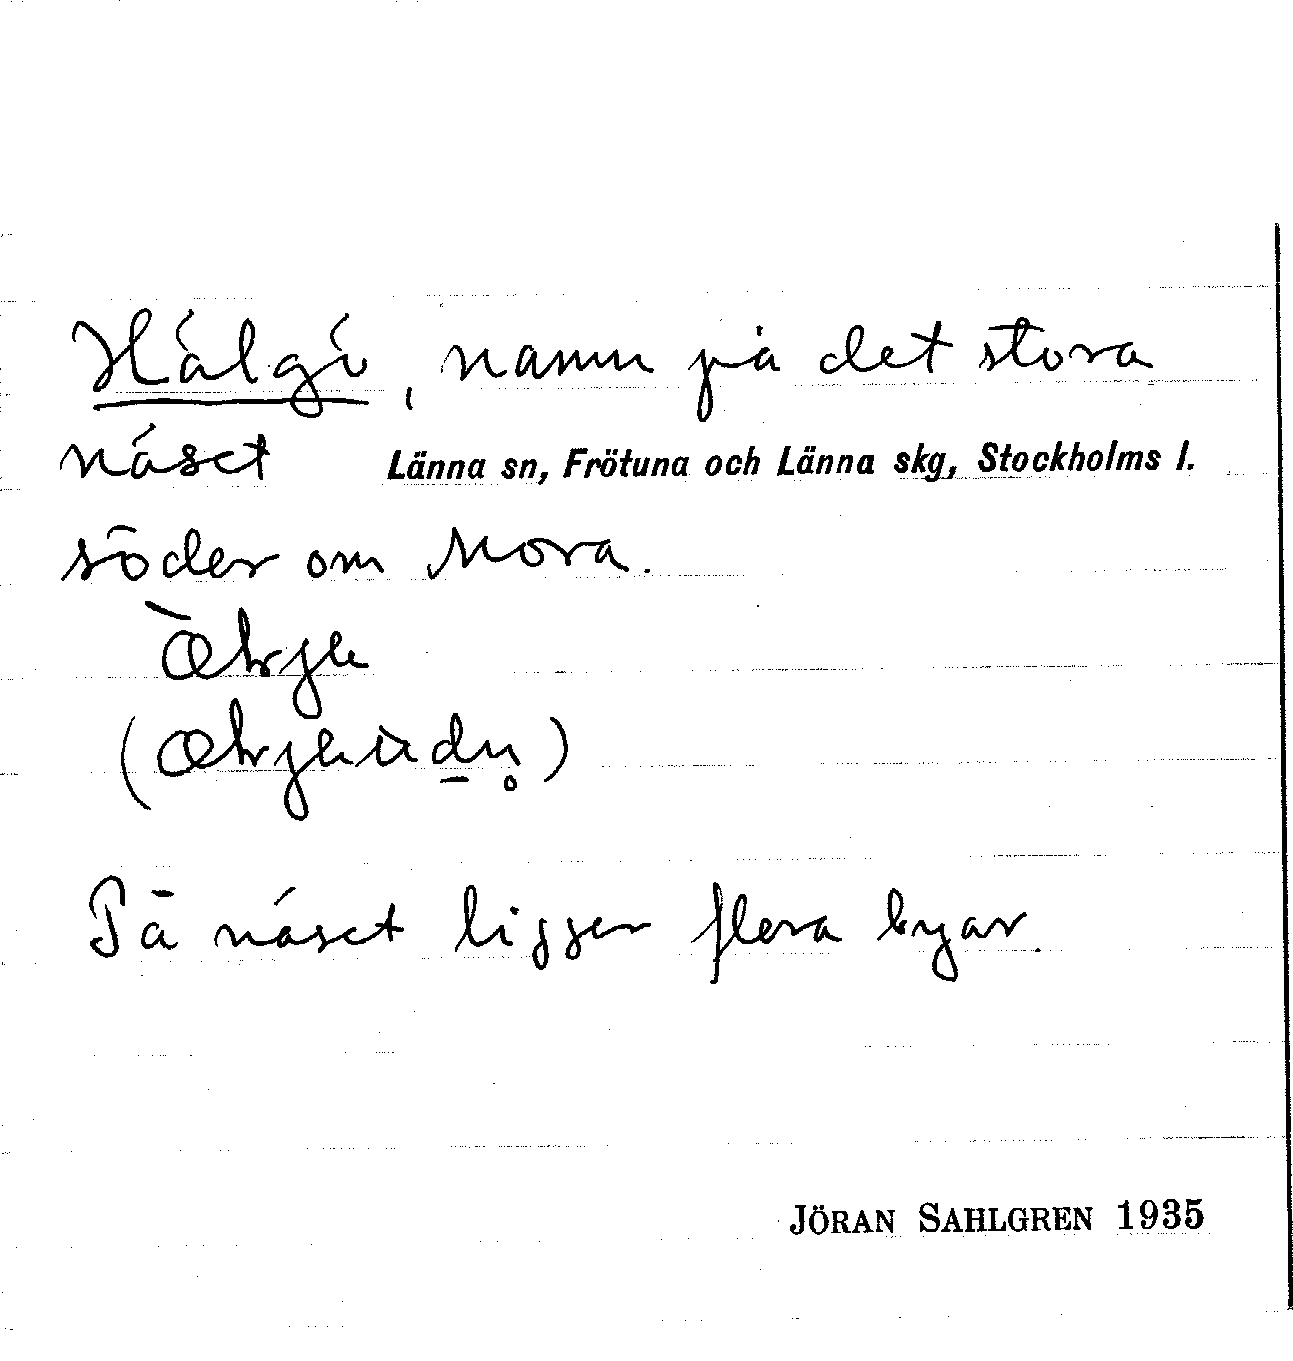 Hälgö, namn på det stora
näset Länna sn, Frötuna och Länna skg, Stockholms l.
söder om Mora.
På näset ligger flera byar.
JÖRAN SAHLGREN 1935